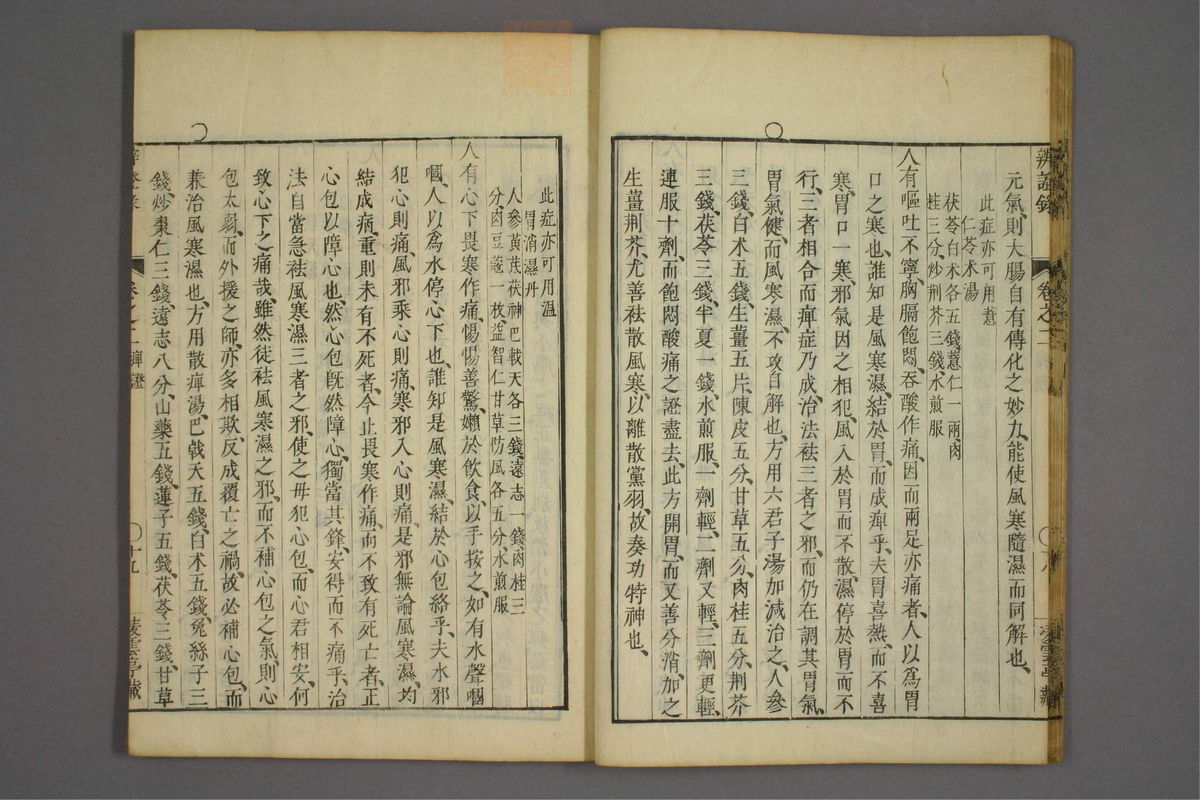 辨證錄 卷之二
元氣、則大腸自有傳化之妙力、能使風寒隨濕而同解也、
此症亦可用薏
仁苓朮湯
茯苓白朮各五錢、薏仁一兩、肉
桂三分、炒荊芥三錢、水煎服
人有嘔吐不寧、胸膈飽悶、吞酸作痛、因而兩足亦痛者、人以爲胃
口之寒也、誰知是風寒濕、結於胃、而成痺乎、夫胃喜熱、而不喜
寒、胃口一寒、邪氣因之相犯、風入於胃而不散、濕停於胃而不
行、三者相合而痺症乃成、治法袪三者之邪、而仍在調其胃氣、
胃氣健、而風寒濕、不攻自解也、方用六君子湯加減治之、人參
三錢、白朮五錢、生薑五片、陳皮五分、甘草五分、肉桂五分、荊芥
三錢、茯苓三錢、半夏一錢、水煎服、一劑輕、二劑又輕、三劑更輕、
連服十劑、而飽悶酸痛之證盡去、此方開胃、而又善分消、加之
生薑荊芥、尤善袪散風寒、以離散黨羽、故奏功特神也、
此症亦可用溫
胃消濕丹
人參黃芪茯神巴戟天各三錢、遠志一錢、肉桂三
分、肉豆蔻一枚益智仁甘草防風各五分水煎服
人有心下畏寒作痛、惕惕善驚、懶於飲食、以手按之、如有水聲嘓
嘓、人以爲水停心下也、誰知是風寒濕、結於心包絡乎、夫水邪
犯心則痛、風邪乘心則痛、寒邪入心則痛、是邪無論風寒濕、均
結成病、重則未有不死者、今止畏寒作痛、而不致有死亡者、正
心包以障心也、然心包既然障心、獨當其鋒、安得而不痛乎、治
法自當急袪風寒濕三者之邪、使之毋犯心包、而心君相安、何
致心下之痛哉、雖然徒袪風寒濕之邪、而不補心包之氣、則心
包太弱、而外援之師、亦多相欺、反成覆亡之禍、故必補心包、而
兼治風寒濕也、方用散痺湯、巴戟天五錢、白朮五錢、兔絲子三
錢、炒棗仁三錢、遠志八分、山藥五錢、蓮子五錢、茯苓三錢、甘草
卷之二痺證 十九